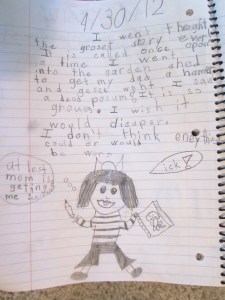 4/30/12
I went
the grosest story ever
is called once apon
a time I went
into the garden shed
to get my dad a hamer
and geuse what I saw
a dead posum. It is so
groues. I wish it
would disaper.
I don't think eneything
could or would
be worse
at lest
mom is
geting
me
ick